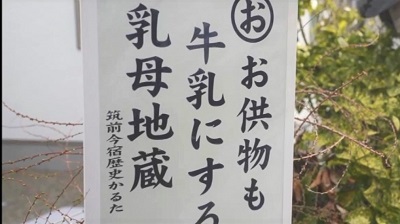 お
お供物も
牛乳にする
乳母地蔵
筑前今宿歴史かるた